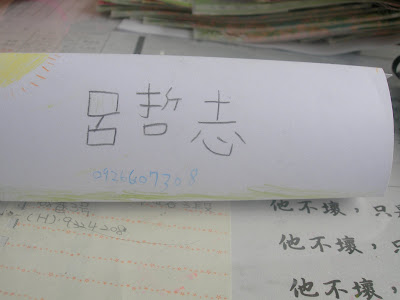 呂哲志
0921607308
(H).9324208
他不壞，只
他不壞，
他不壞，